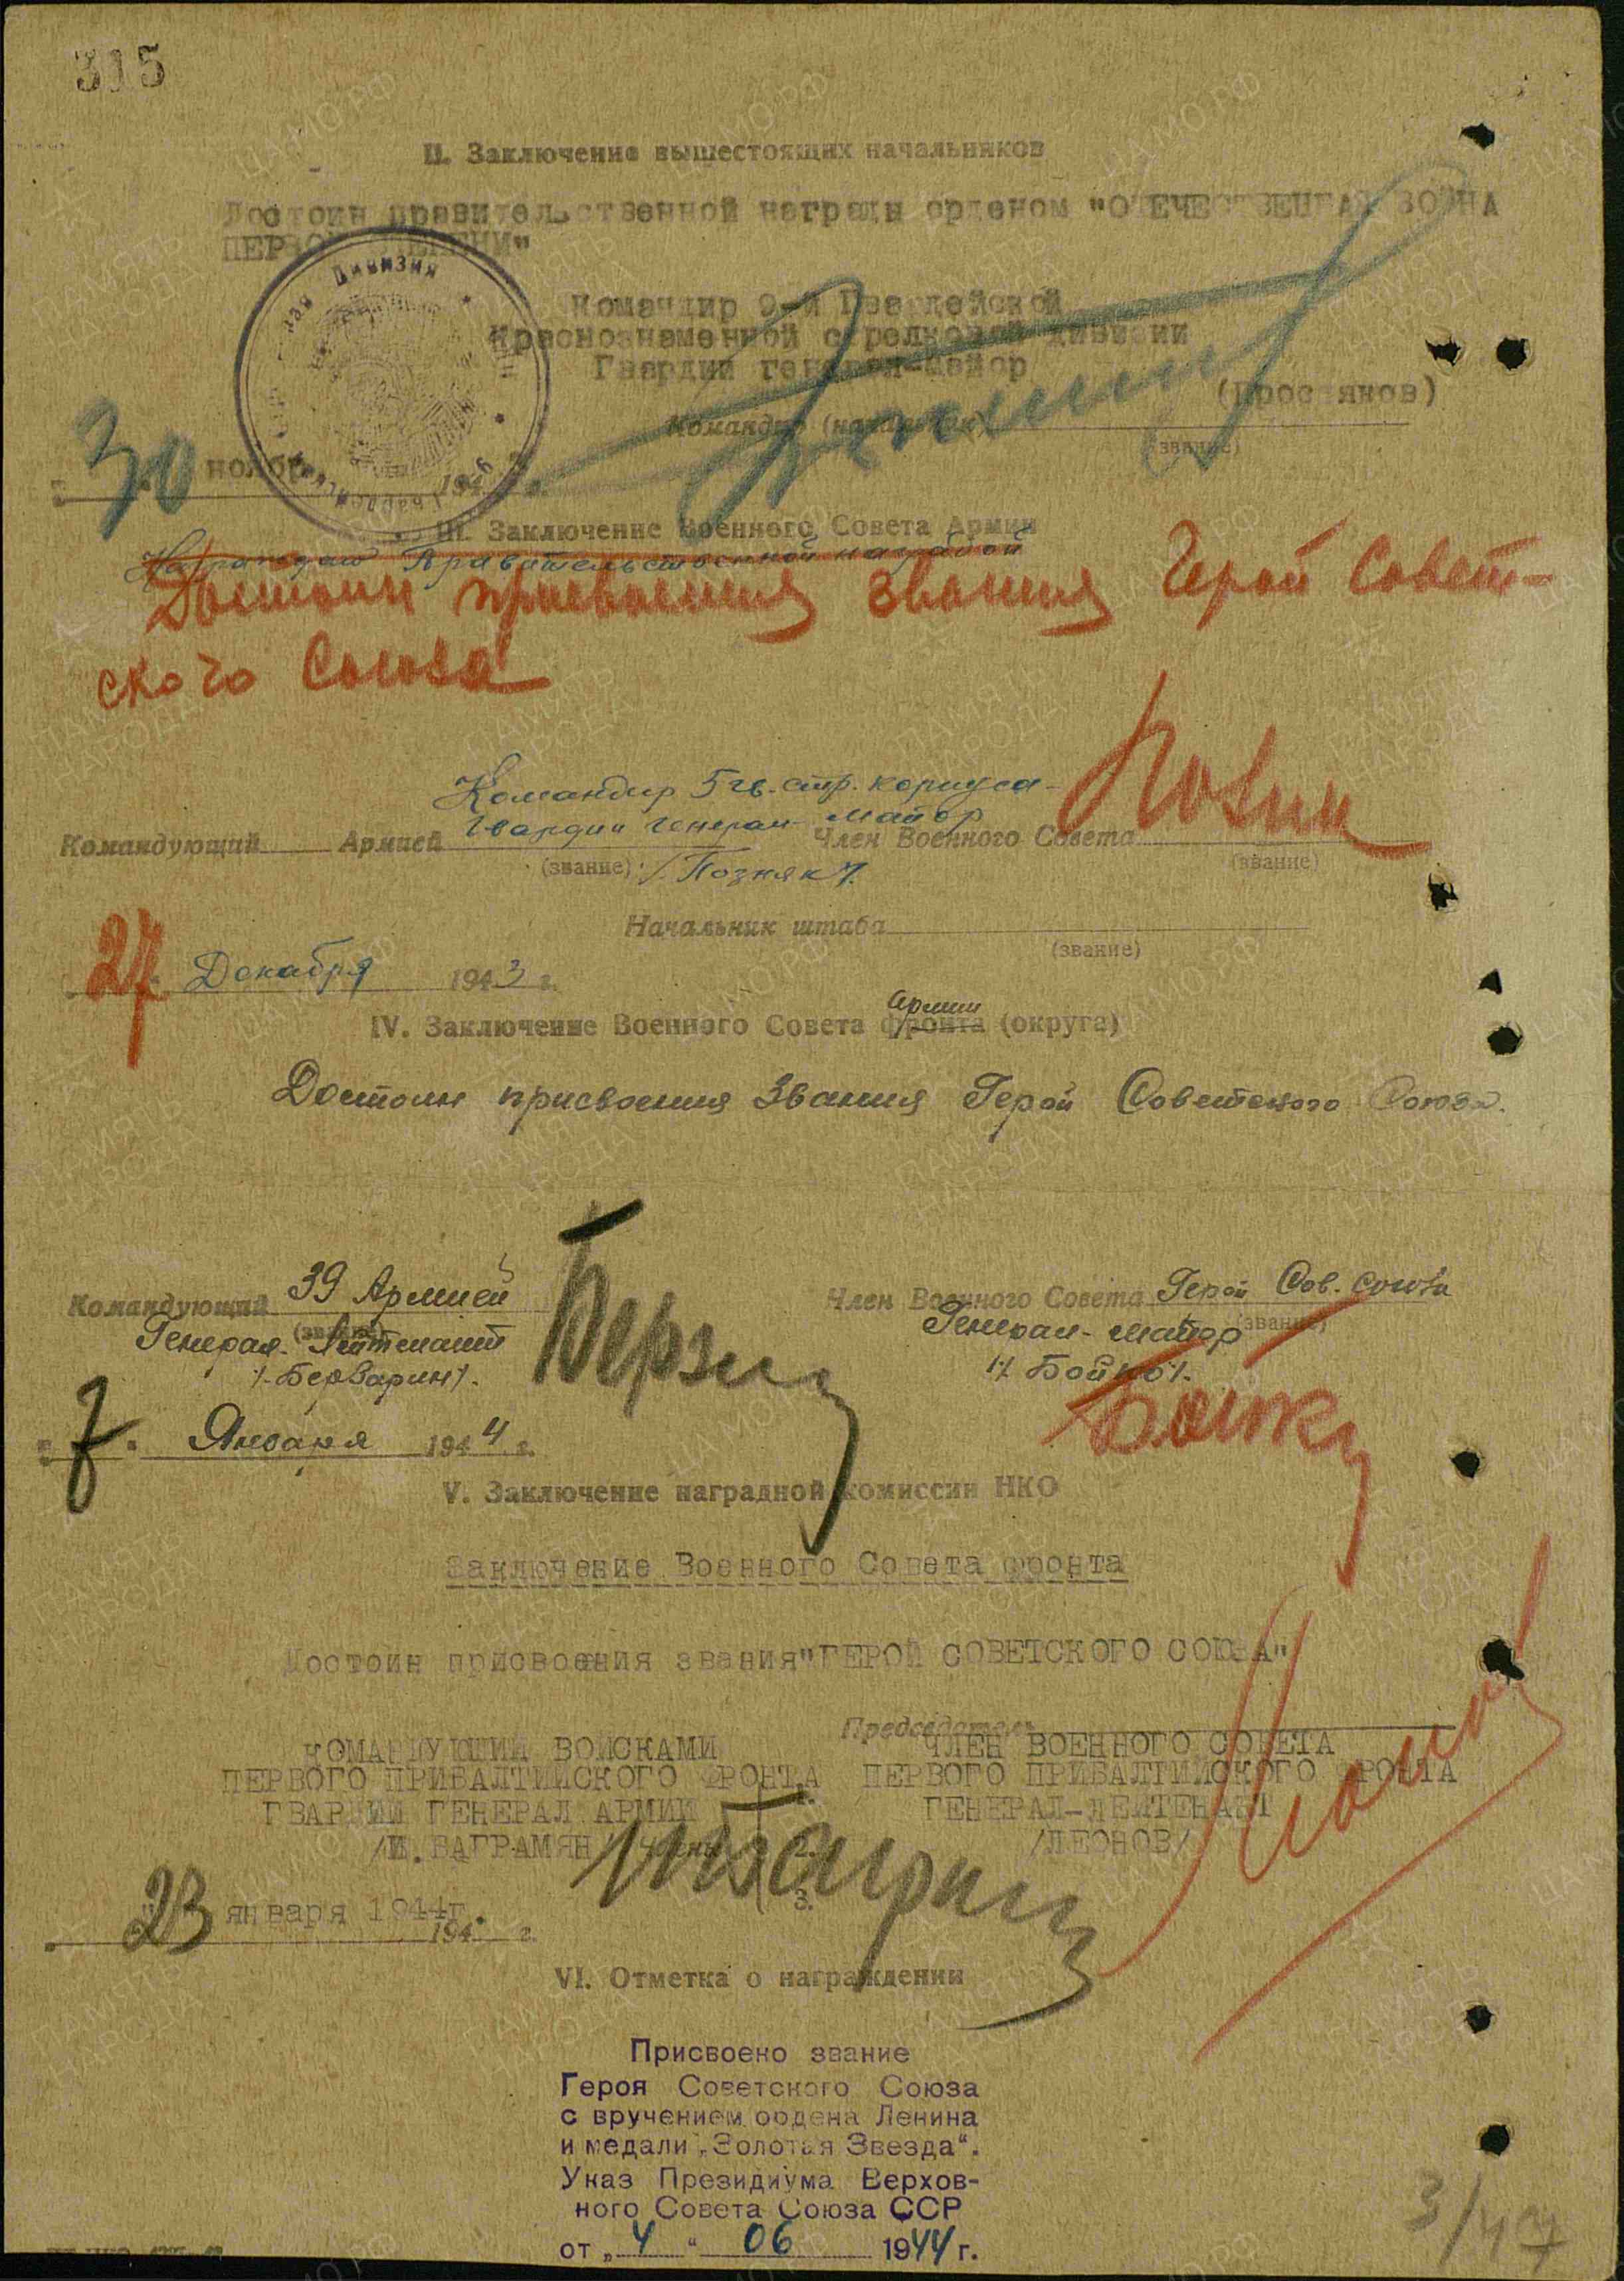 315
II. Заключение вышестоящих начальников
Достоин правительственной награды орденом "ОТЕЧЕСТВЕННАЯ ВОЙНА
ПЕРВОЙ СТЕПЕНИ"
Командир 9-й Гвардейской
Краснознаменной стрелковой дивизии
Гвардии генерал-майор
(Простяков)
Командир (начальник)
(звание)
30 ноября 1943 г.
III. Заключение Военного Совета Армии
Награждаю Правительственной наградой
Достоин присвоения звания Герой Совет-
ского Союза
Командир 5 гв. стр. корпуса-
Гвардии генерал-майор
Командующий Армией Член Военного Совета
(звание) /Позняк/. (звание)
Начальник штаба
(звание)
27 Декабря 1943 г.
Армии
IV. Заключение Военного Совета фронта (округа)
Достоин присвоения Звания Герой Советского Союза.
Командующий 39 Армией Член Военного Совета Герой Сов. Союза
(звание) (звание)
Генерал-Лейтенант Генерал-майор
/-Берзарин/. /Бойко/.
7. Января 1944 г.
V. Заключение наградной комиссии НКО
Заключение Военного Совета фронта
Достоин присвоения звания "ГЕРОЙ СОВЕТСКОГО СОЮЗА"
Председатель
КОМАНДУЮЩИЙ ВОЙСКАМИ ЧЛЕН ВОЕННОГО СОВЕТА
ПЕРВОГО ПРИБАЛТИЙСКОГО ФРОНТА ПЕРВОГО ПРИБАЛТИЙСКОГО ФРОНТА
ГВАРДИИ ГЕНЕРАЛ АРМИИ ГЕНЕРАЛ-ЛЕЙТЕНАНТ
/И. БАГРАМЯН/ /ЛЕОНОВ/
2.
3.
23 января 1944г.
194 г.
VI. Отметка о награждении
Присвоено звание
Героя Советского Союза
с вручением ордена Ленина
и медали „Золотая Звезда“.
Указ Президиума Верхов-
ного Совета Союза ССР
от „4“ 06 1944 г.
3/47